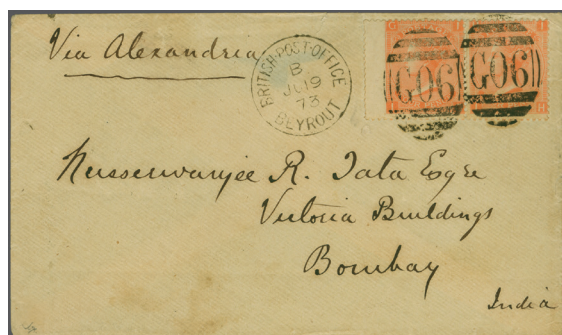 Via Alexandria
BRITISH·POST·OFFICE
B
JU 19
73
BEYROUT
G06
G06
Nusserwanjee R. Tata Esqre
Victoria Buildings
Bombay
India